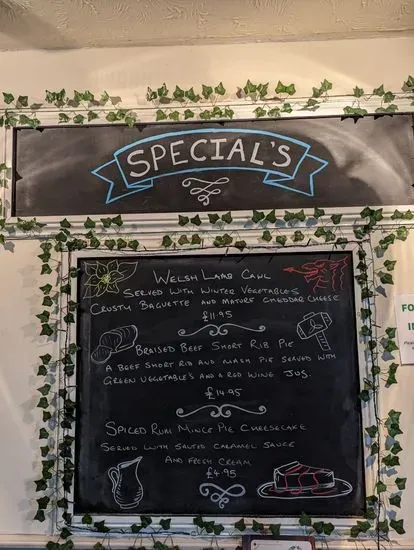 SPECIAL'S
WELSH LAMB CAWL
SERVED WITH WINTER VEGETABLES
CRUSTY BAGUETTE AND MATURE CHEDDAR CHEESE
£11.95
BRAISED BEEF SHORT RIB PIE
A BEEF SHORT RIB AND MASH PIE SERVED WITH
GREEN VEGETABLE'S AND A RED WINE JUS.
£14.95
SPICED RUM MINCE PIE CHEESECAKE
SERVED WITH SALTED CARAMEL SAUCE
AND FRESH CREAM
£4.95